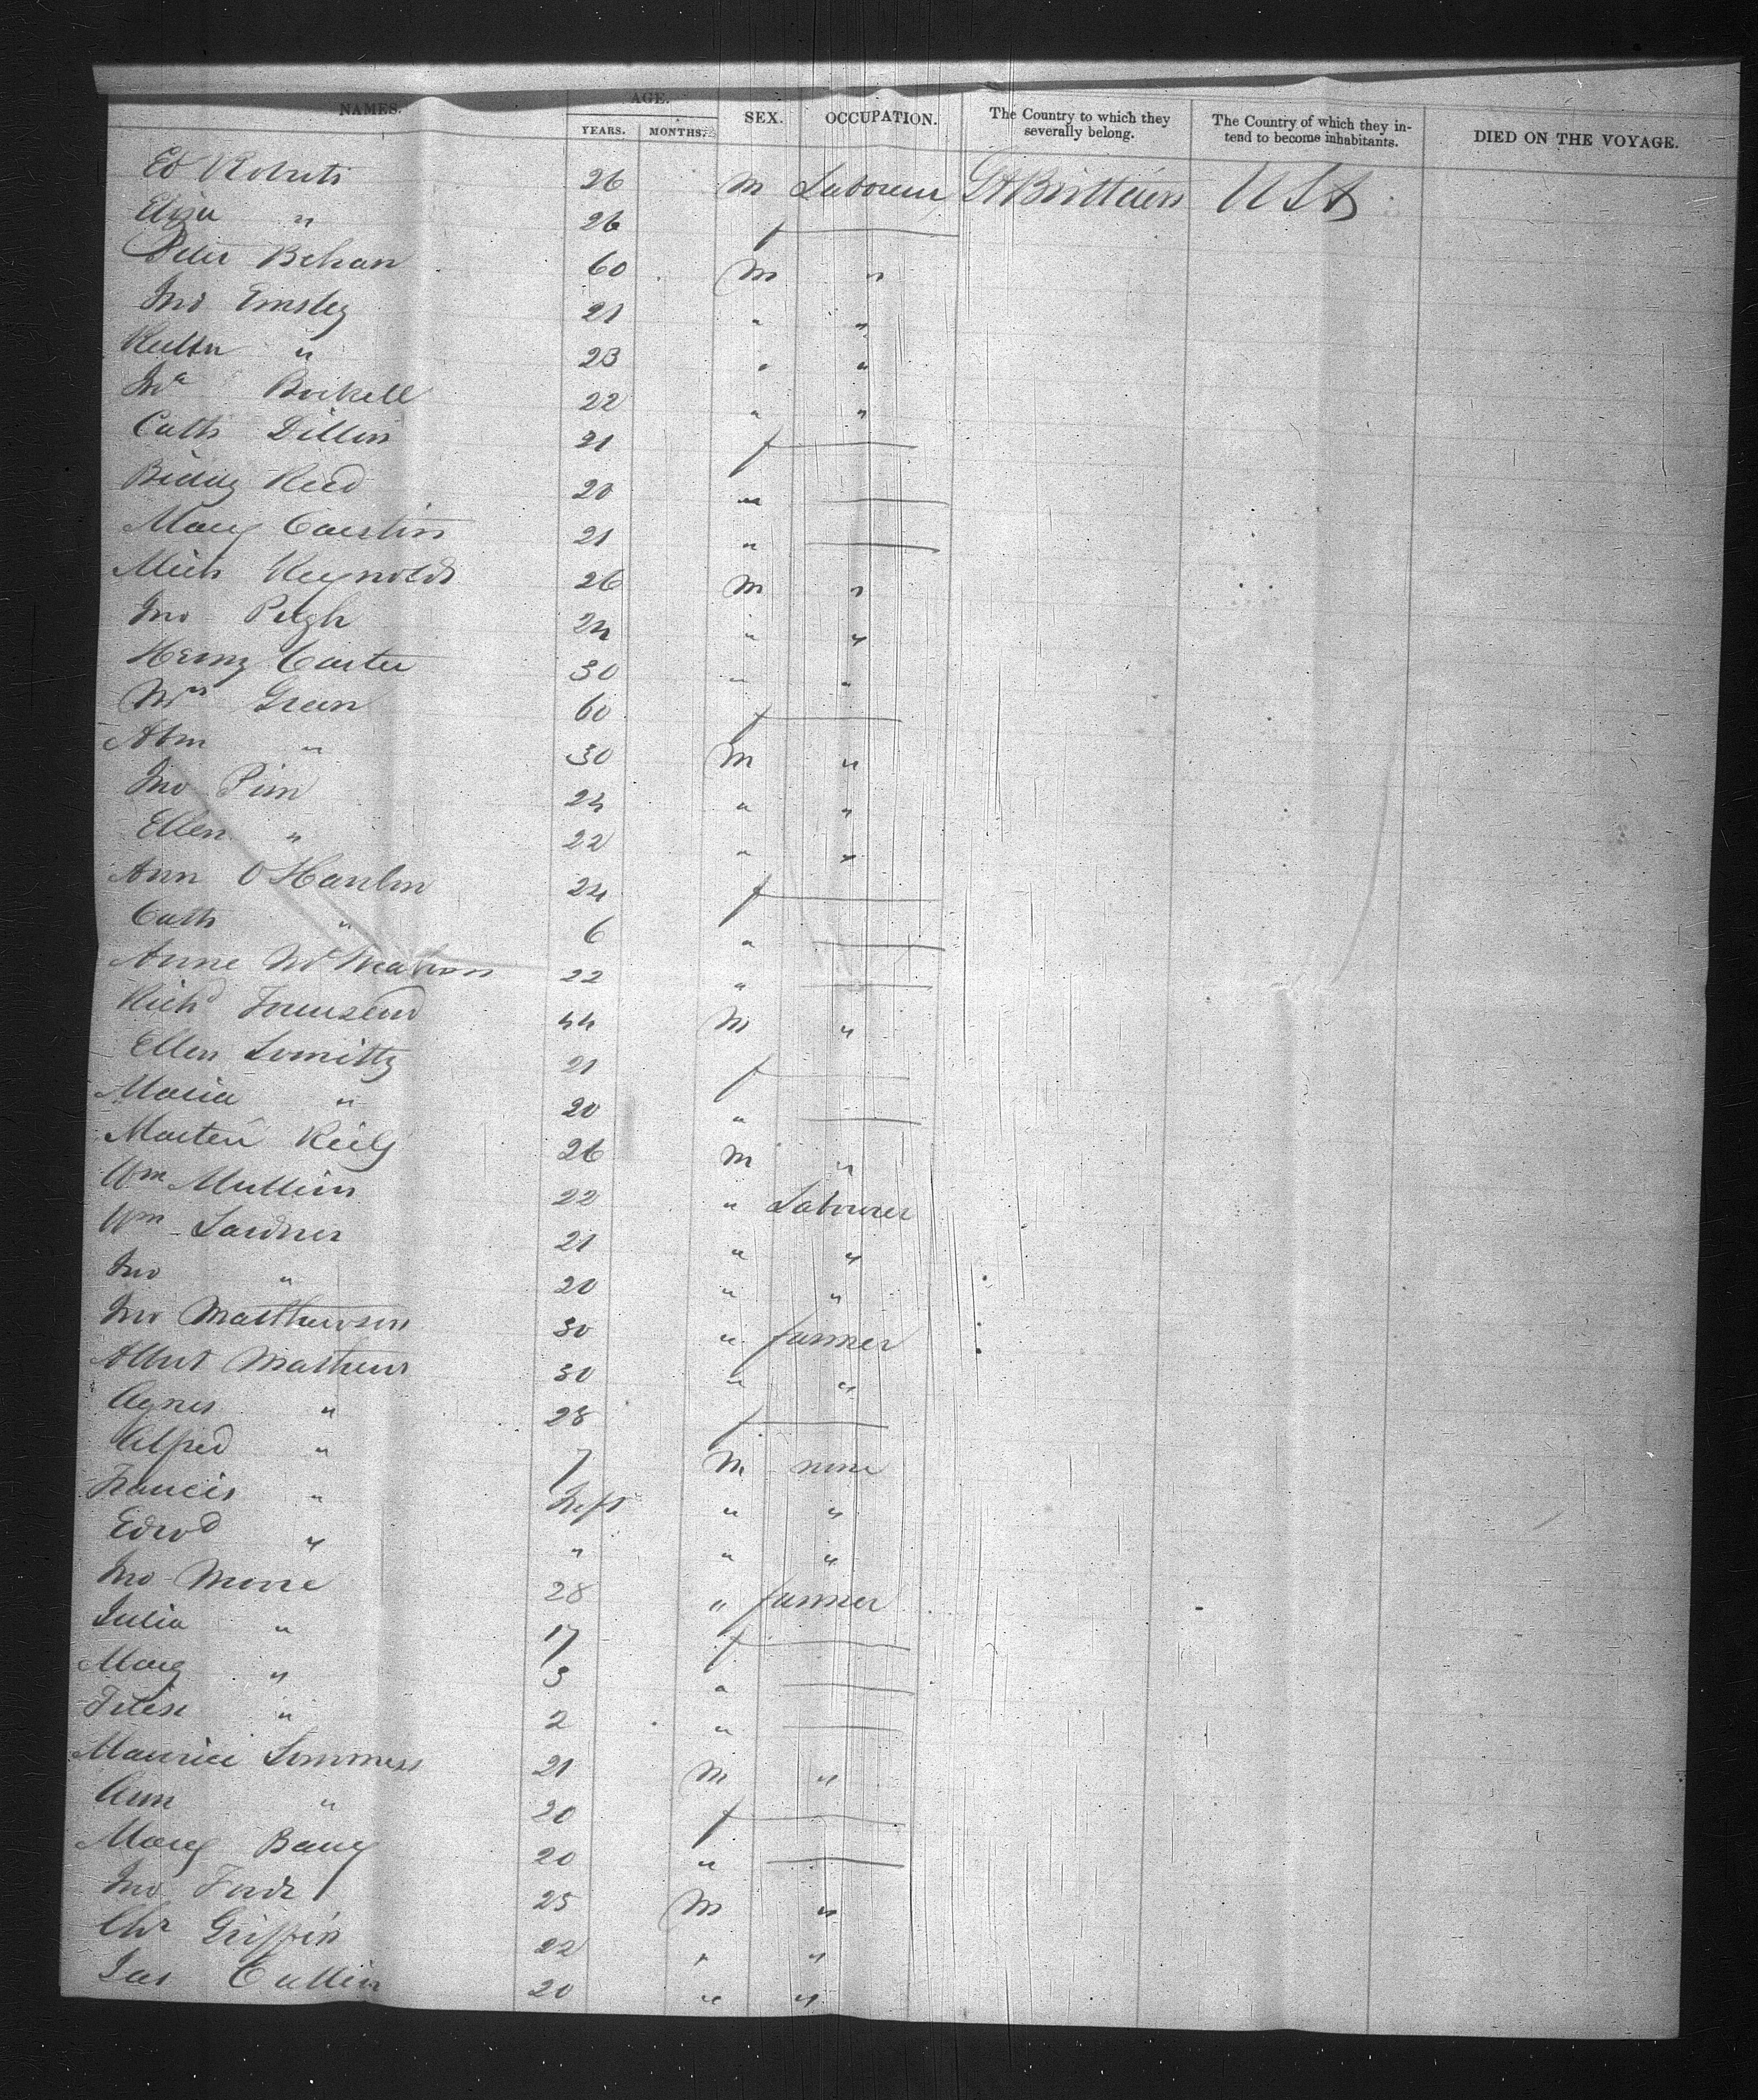 NAMES. AGE. SEX. OCCUPATION. The Country to which they severally belong. The Country of which they intend to become inhabitants. DIED ON THE VOYAGE.
YEARS. MONTHS.
Ed Roberts 26 M Labourer Gt Brittain USA
Eliza " 26 f
Peter Behan 60 M "
Jno Emsley 21 " "
" 23 " "
Bockell 22 " "
Cath Dillon 21 f
Biddy Reed 20 "
Mary 21 "
Mich Reynolds 26 M "
Jno Pugh 24 " "
Henry Carter 30 " "
Mrs Green 60 f
Abm " 30 M "
Jno Pim 24 " "
Ellen " 22 " "
Ann O Hanlon 24 f
Cath " 6 "
Anne Mc 22 "
Richd Townsend 44 M "
Ellen 21 f
Maria " 20 "
Martin 26 M "
Wm Mullins 22 " Labourer
Wm Lardner 21 " "
Jno " 20 " "
Jno Matthewson 30 " farmer
Albert Mathews 30 " "
Agnes " 28 f
Alfred " 7 M none
Francis " Inft " "
Edwd " " " "
Jno Moore 28 " farmer
Julia " 17 f
Mary " 3 "
" 2 "
Maurice 21 M "
Ann " 20 f
Mary 20 "
Jno 25 M "
Chr Griffin 22 " "
Jas Cullin 20 " "